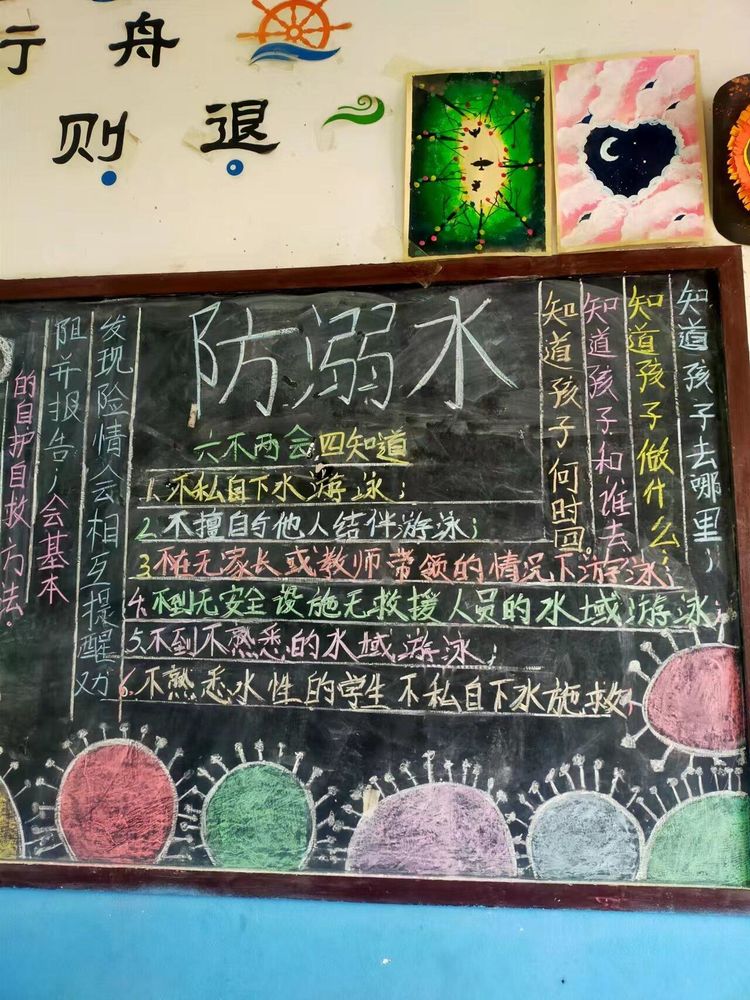 行舟
则退
防溺水
六不两会四知道
1.不私自下水游泳；
2.不擅自与他人结伴游泳；
3.不在无家长或教师带领的情况下游泳；
4.不到无安全设施无救援人员的水域游泳；
5.不到不熟悉的水域游泳；
6.不熟悉水性的学生不私自下水施救
发现险情会相互提醒劝
阻并报告/会基本
的自护自救方法.
知道孩子去哪里；
知道孩子做什么；
知道孩子和谁去
知道孩子何时回。